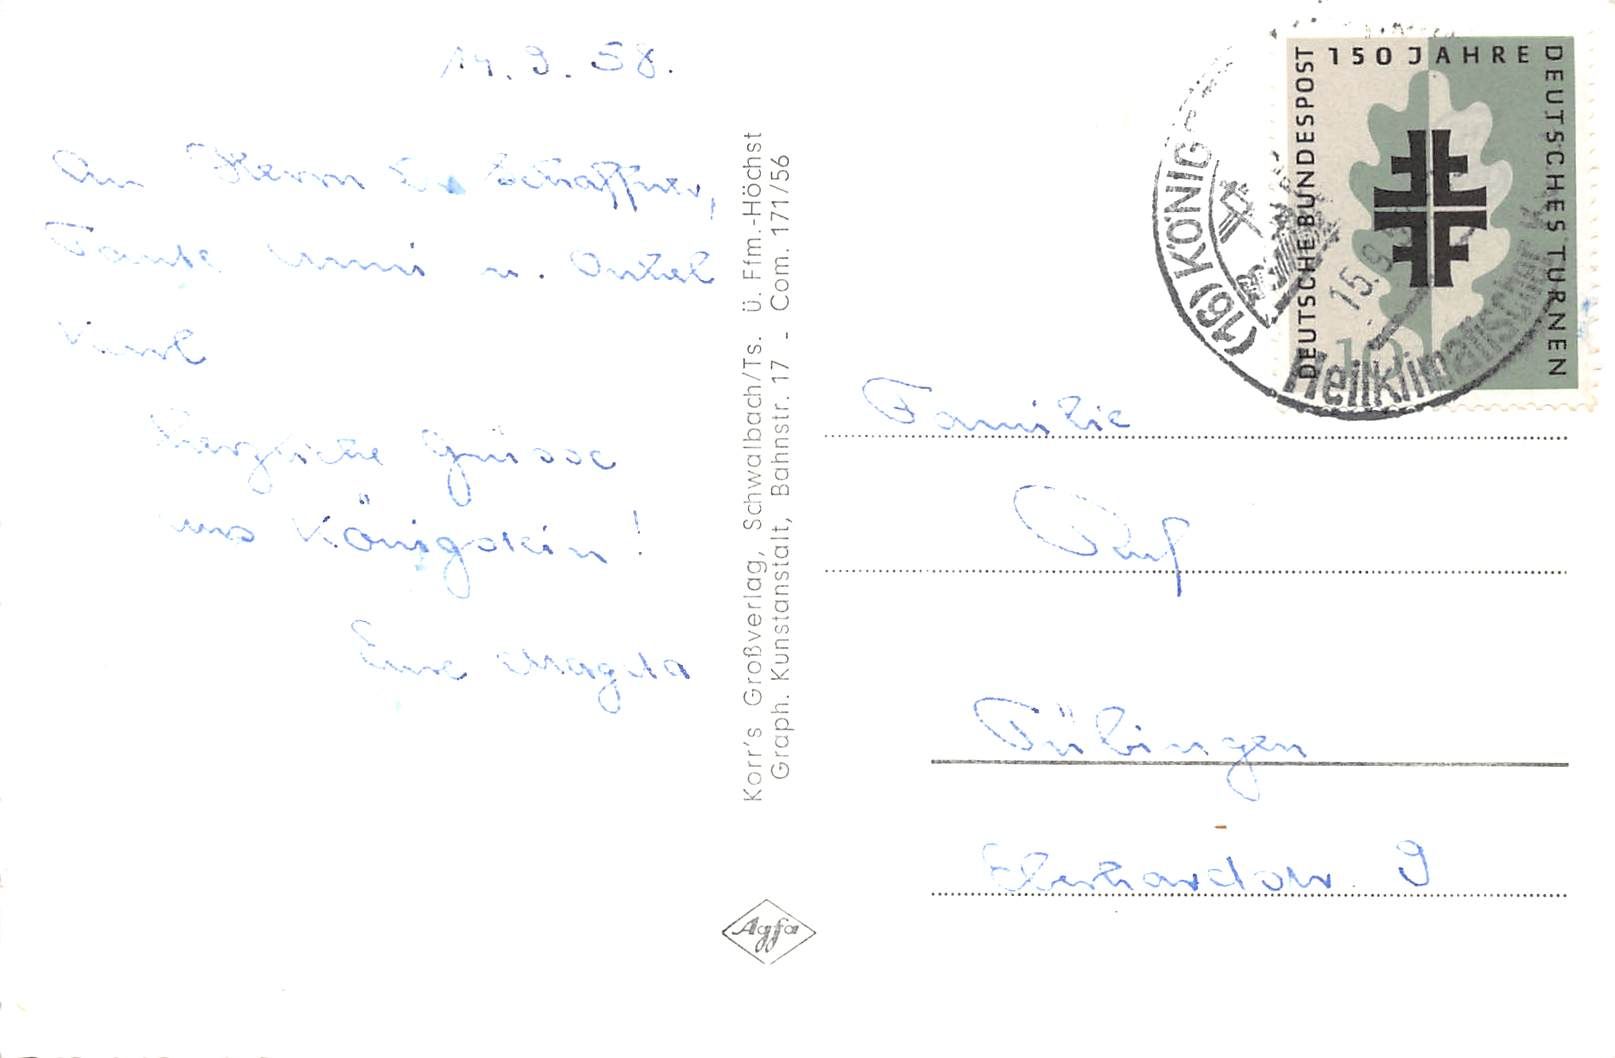 14.9.58.
An Herrn Dr Schaffner,
Tante Emmi u. Onkel
Karl
herzliche Grüsse
aus Königstein!
Eure Magda
Korr's Großverlag, Schwalbach/Ts. Ü. Ffm.-Höchst
Graph. Kunstanstalt, Bahnstr. 17 - Com. 171/56
Agfa
DEUTSCHE BUNDESPOST
150 JAHRE
DEUTSCHES TURNEN
10
(16) KÖNIG
15.9.
Heilklimatischer K
Familie
Tübingen
Eberhardstr. 9